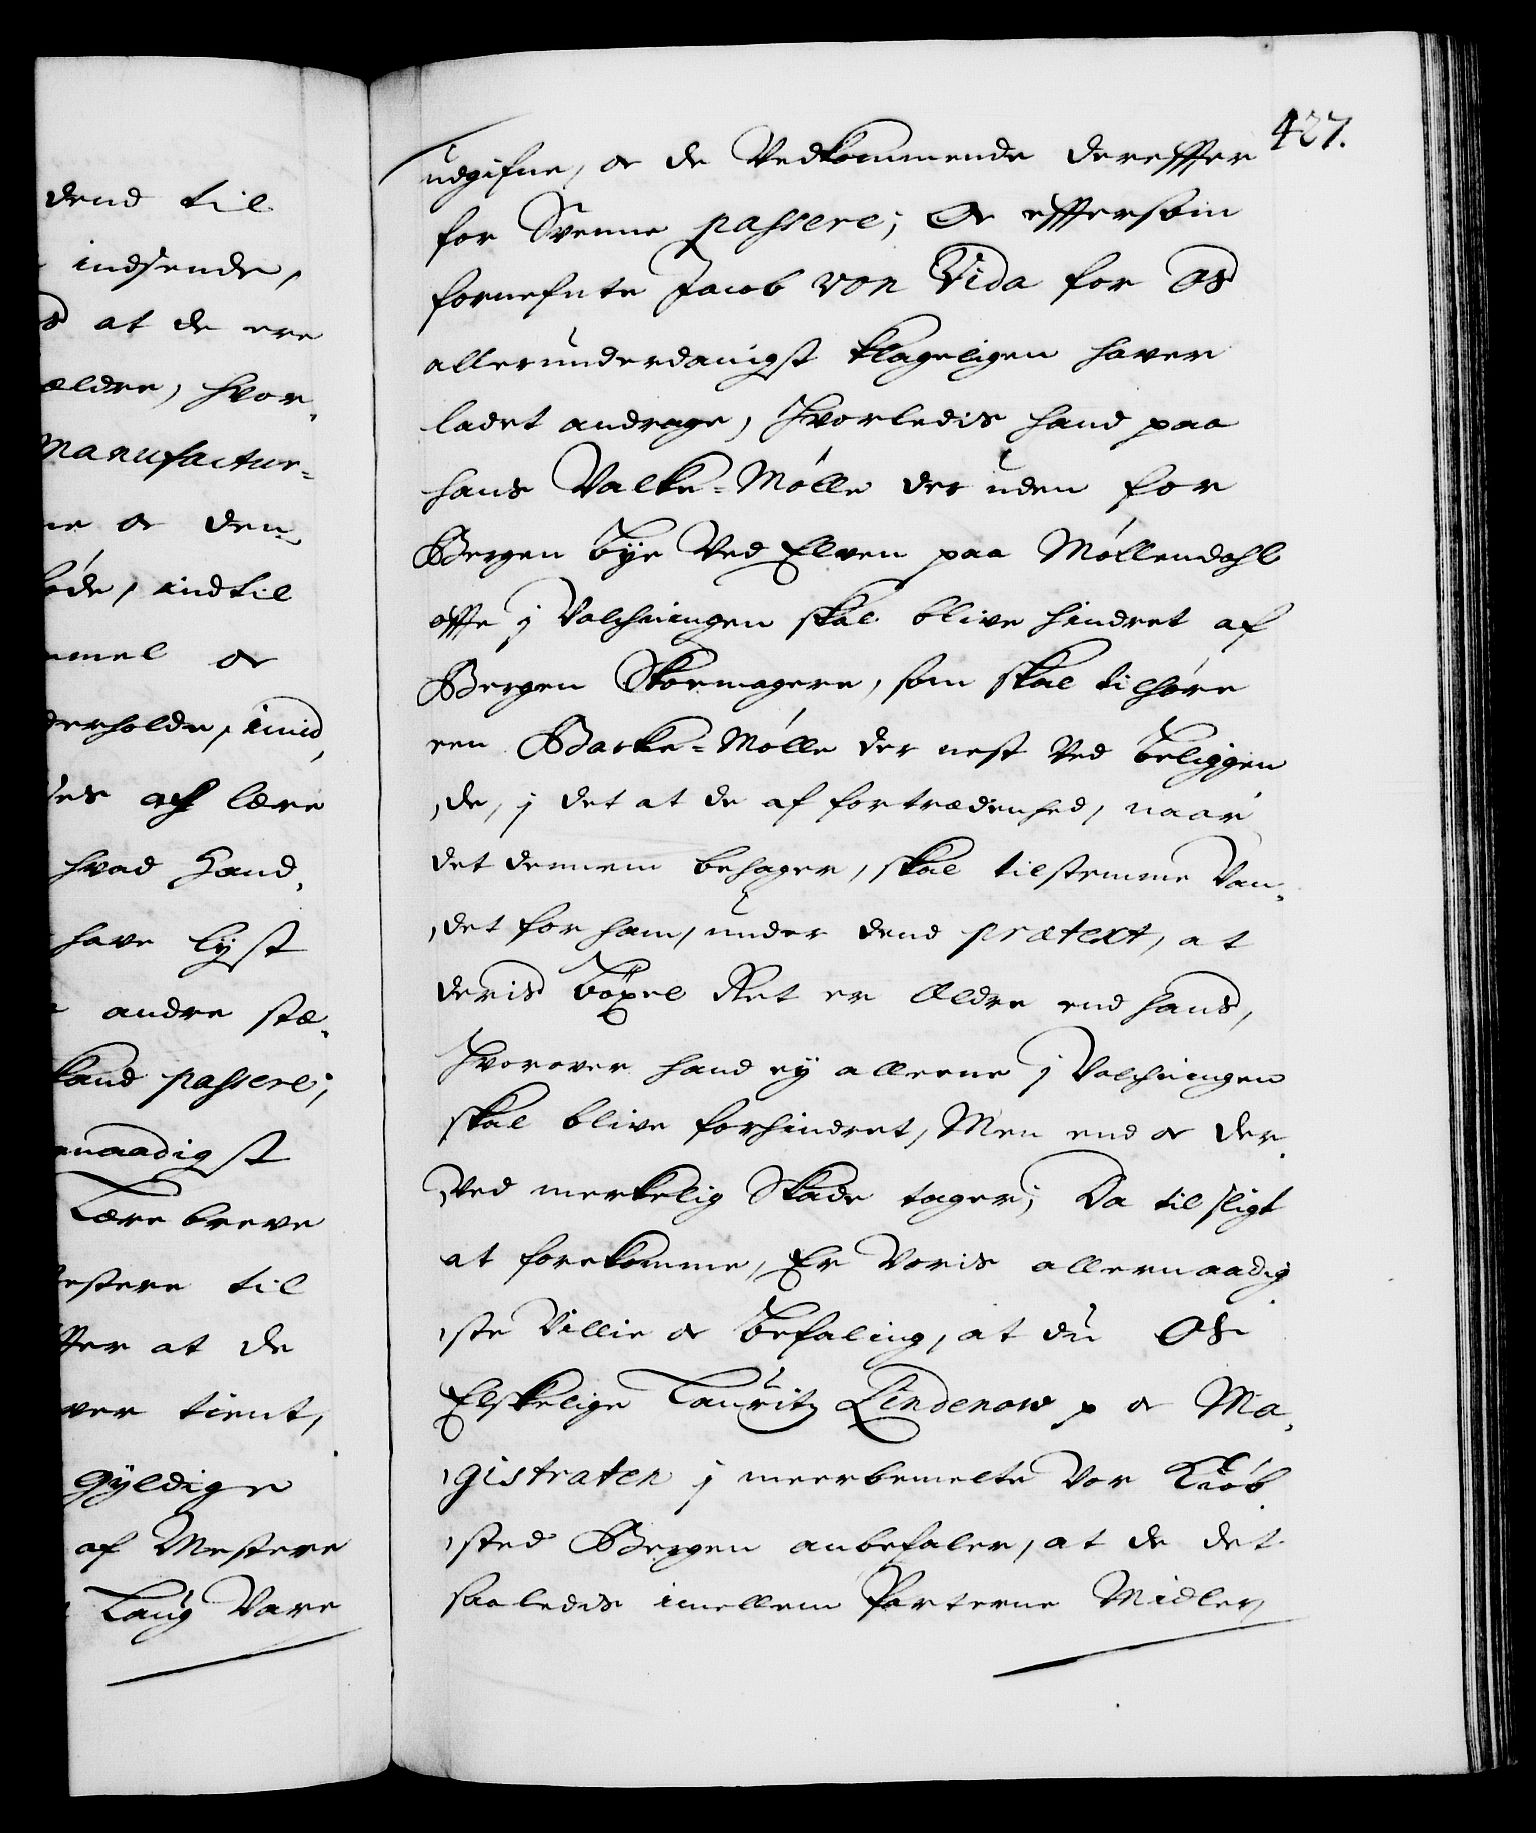 dend til
indsende,
at de ere
ældre, hvor-
Manufactur-
ne oc den-
indtil
oc
derholde, imid-
lære
hvad Hand-
have lyst
andre stæ-
kand passere;
naadigst
Lærebreve
mestere til
at de
tient,
gyldige
af Mestere
Laug Vare
427.
udgifne, oc de Vedkommende derefter
for Svenne passere; Oc eftersom
fornefnte Jacob von Vida for Os
allerunderdanigst klageligen haver
ladet andrage, hvorledis hand paa
hans Valke-Mølle der uden for
Bergen bye ved Elven paa Møllendahl
offte j Valchningen skal blive hindret af
Bergen Skoemagere, som skal tilhøre
een Barke-Mølle der nest ved beliggen-
de, j det at de af fortrædenhed, naar
det dennem behager, skal tilstemme Van-
det for ham, under dend prætext, at
deris böxel Ret er Ældre end hans,
hvorover hand ey alleene j Valchningen
skal blive forhindret, Men end oc der-
ved merkelig Skade tager; Da til sligt
at forekomme, Er Voris allernaadig-
ste Villie oc befaling, at du Os
Elskelige Lauritz Lindenow p oc Ma-
gistraten j meerbemelte Vor Kiøb-
sted Bergen anbefaler, at de det
saaledis imellem Parterne Midler,